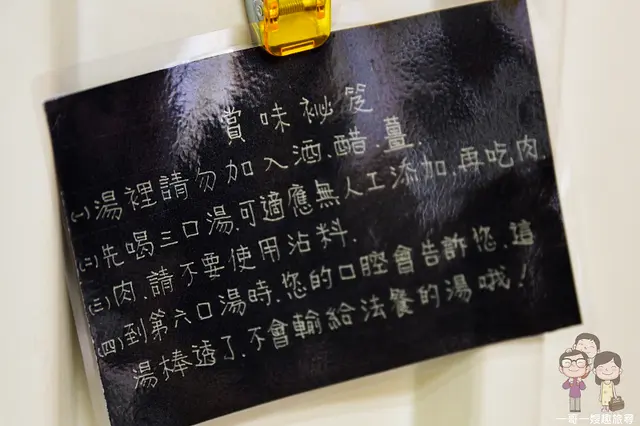 賞味祕笈
(一)湯裡請勿加入酒.醋.薑.
(二)先喝三口湯.可適應無人工添加.再吃肉.
(三)肉.請不要使用沾料.
(四)到第六口湯時.您的口腔會告訴您.這
湯棒透了.不會輸給法餐的湯哦!
一哥一嫂趣旅尋